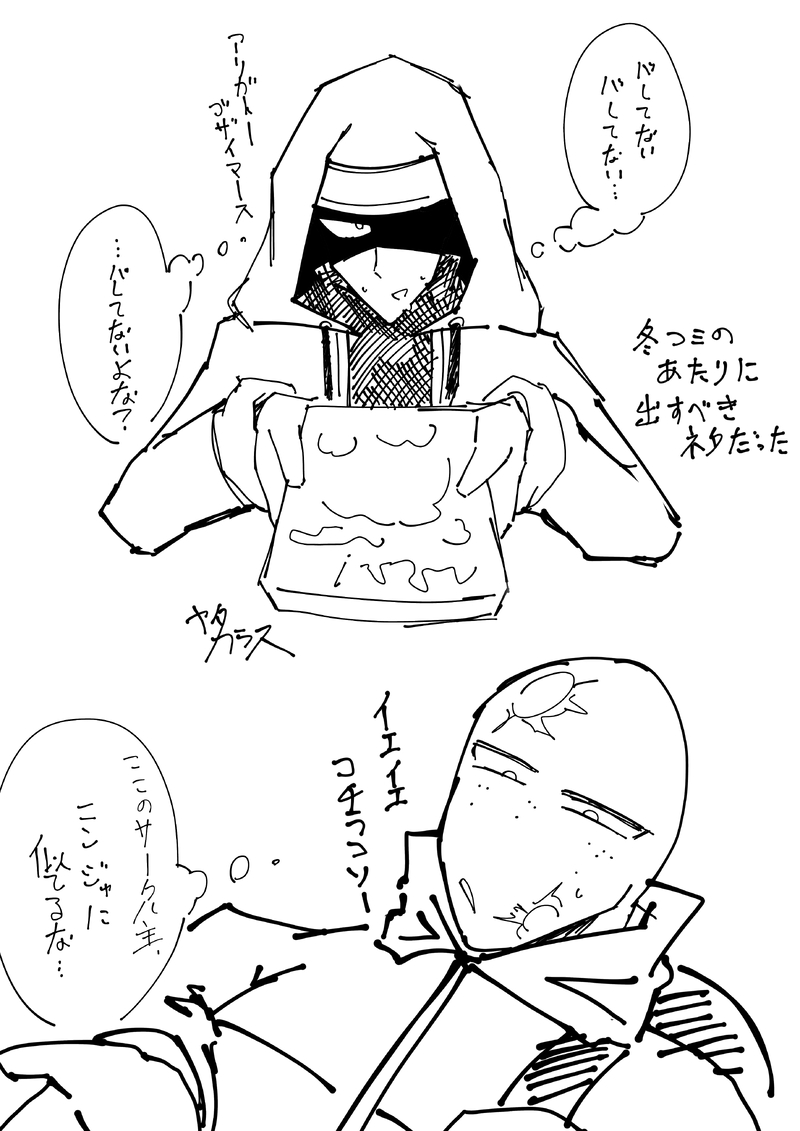 バレてない
バレてない…
アリガトー
ゴザイマース
…バレてないよな？
冬コミの
あたりに
出すべき
ネタだった
ヤタ
カラス
イエイエ
コチラコソー
ここのサークル主、
ニンジャに
似てるな…